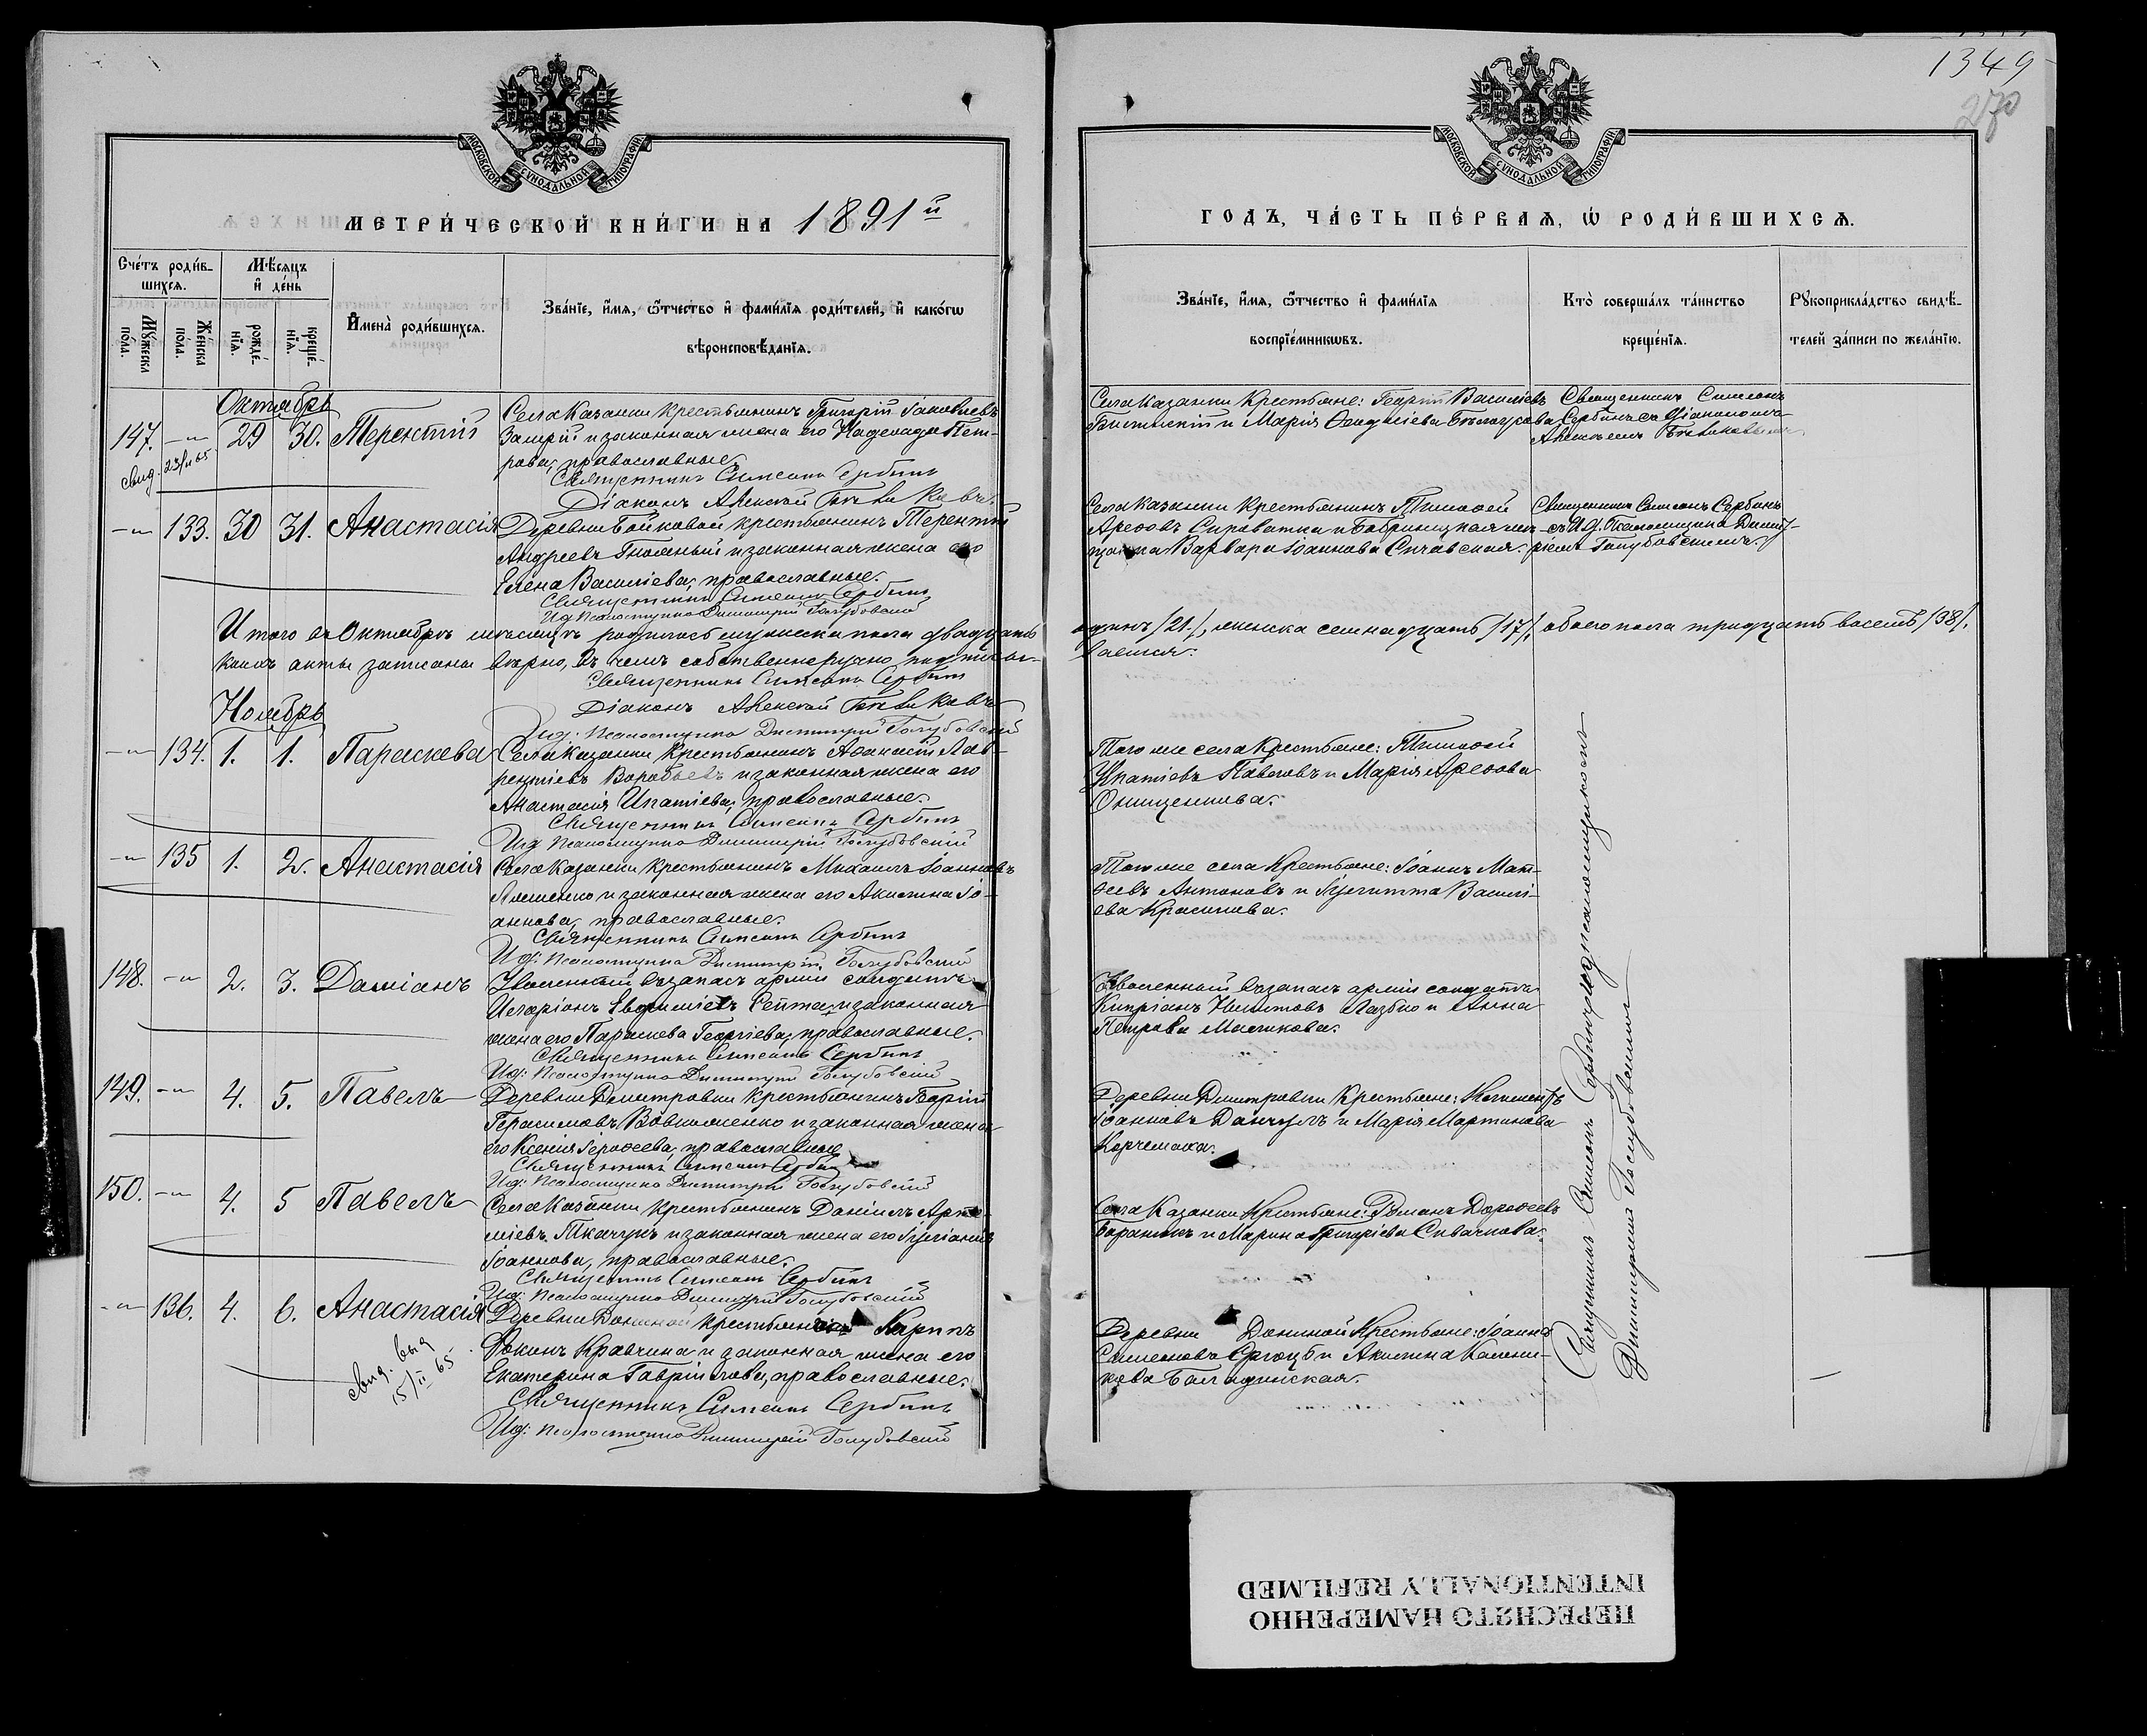 1349
270
МОСКОВСКОЙ СУНОДАЛЬНОЙ ТИПОГРАФІИ
МОСКОВСКОЙ СУНОДАЛЬНОЙ ТИПОГРАФІИ
МЕТРИ́ЧЕСКОЙ КНИ́ГИ НА 1891й
ГОДЪ, ЧА́СТЬ ПЕ́РВАѦ, Ѡ РОДИ́ВШИХСѦ.
Сче́тъ роди́в-
шихсѧ.
Мѣ́сѧцъ
и҆ де́нь
Мꙋ́жеска
по́ла.
Же́нска
по́ла.
рожде́-
нїѧ.
креще́-
нїѧ.
И҆мена̀ роди́вшихсѧ.
Зва́нїе, и҆́мѧ, ѻ҆́тчество и҆ фами́лїѧ роди́телей, и҆ како́гѡ
вѣроисповѣ́данїѧ.
Зва́нїе, и҆́мѧ, ѻ҆́тчество и҆ фами́лїѧ
воспрїе́мникѡвъ.
Кто̀ соверша́лъ та́инство
креще́нїѧ.
Рꙋкоприкла́дство свидѣ́-
телей за́писи по жела́нїю.
Октябрь
147. -"- 29 30. Терентій
свид. 23/II 65
Села Казанки крестьянинъ Григорій Іаковлевъ
и законная жена его Надежда Пет-
рова, православные.
Священникъ Симеонъ Сербинъ
Діаконъ Алексѣй
Села Казанки Крестьяне: Георгій Василіевъ
и Марія
Священникъ Симеонъ
Сербинъ съ Діакономъ
-"- 133. 30 31. Анастасія
Деревни Бойковой крестьянинъ Терентій
Андреевъ Гноевый и законная жена его
Елена Василіева, православные.
Священникъ Симеонъ Сербинъ
Ид Псаломщика Димитрій Голубовскій
Села Казанки Крестьянинъ Тимофей
Арефовъ Сыроватка и
Варвара Іоаннова
Священникъ Симеонъ Сербинъ
съ И.д. Псаломщика Димит-
ріемъ Голубовскимъ.
Итого въ Октябрѣ мѣсяцѣ родилось мужеска пола двадцать
одинъ /21/, женска семнадцать /17/, обоего пола тридцать восемь /38/.
акты записаны вѣрно, въ чемъ собственноручно подписы-
ваемся:
Священникъ Симеонъ Сербинъ
Діаконъ Алексѣй
Ид: Псаломщика Димитрій Голубовскій
Ноябрь
-"- 134. 1. 1. Параскева
Села Казанки Крестьянинъ Афанасій Лав-
рентіевъ Воробьевъ и законная жена его
Анастасія Ипатіева, православные.
Священникъ Симеонъ Сербинъ
Ид Псаломщика Димитрій Голубовскій
Того же села Крестьяне: Тимофей
Ипатіевъ Павловъ и Марія Арефова
Онищенкова.
-"- 135 1. 2. Анастасія
Села Казанки Крестьянинъ Михаилъ Іоанновъ
Ляшенко и законная жена его Акилина Іо-
аннова, православные.
Священникъ Симеонъ Сербинъ
Ид: Псаломщика Димитрій Голубовскій
Того же села Крестьяне: Іоаннъ Мат-
ѳеевъ Антоновъ и Іулитта Василі-
ева Красикова.
148. -"- 2. 3. Даміанъ
Уволенный въ запасъ арміи солдатъ
Иларіонъ Евфиміевъ и законная
жена его Параскева Георгіева, православные.
Священникъ Симеонъ Сербинъ
Ид: Псаломщика Димитрій Голубовскій
Уволенный въ запасъ арміи солдатъ
Кипріанъ Никитовъ и Анна
Петрова Масликова.
149. -"- 4. 5. Павелъ
Деревни Дмитровки Крестьянинъ Георгій
Герасимовъ Вовкотенко и законная жена
его Ксенія Іероѳеева, православные
Священникъ Симеонъ Сербинъ
Ид: Псаломщика Димитрій Голубовскій
Деревни Димитровки Крестьяне: Климентъ
Іоанновъ и Марія Мартинова
150. -"- 4. 5 Павелъ
Села Казанки крестьянинъ Даніилъ Арте-
міевъ Ткачукъ и законная жена его Іуліанія
Іоаннова, православные.
Священникъ Симеонъ Сербинъ
Ид: Псаломщика Димитрій Голубовскій
Села Казанки Крестьяне: Романъ Дороѳеевъ
и Марина Григоріева
-"- 136. 4. 6. Анастасія
свид. выд
15/II 65
Деревни крестьянинъ Карпъ
Фокинъ Кравчина и законная жена его
Екатерина Гавріилова, православные.
Священникъ Симеонъ Сербинъ
Ид: Псаломщика Димитрій Голубовскій
Деревни Крестьяне: Іоаннъ
Симеоновъ и Акилина
Священникъ Симеонъ Сербинъ
Димитріемъ Голубовскимъ
ПЕРЕСНЯТО НАМЕРЕННО
INTENTIONALLY REFILMED